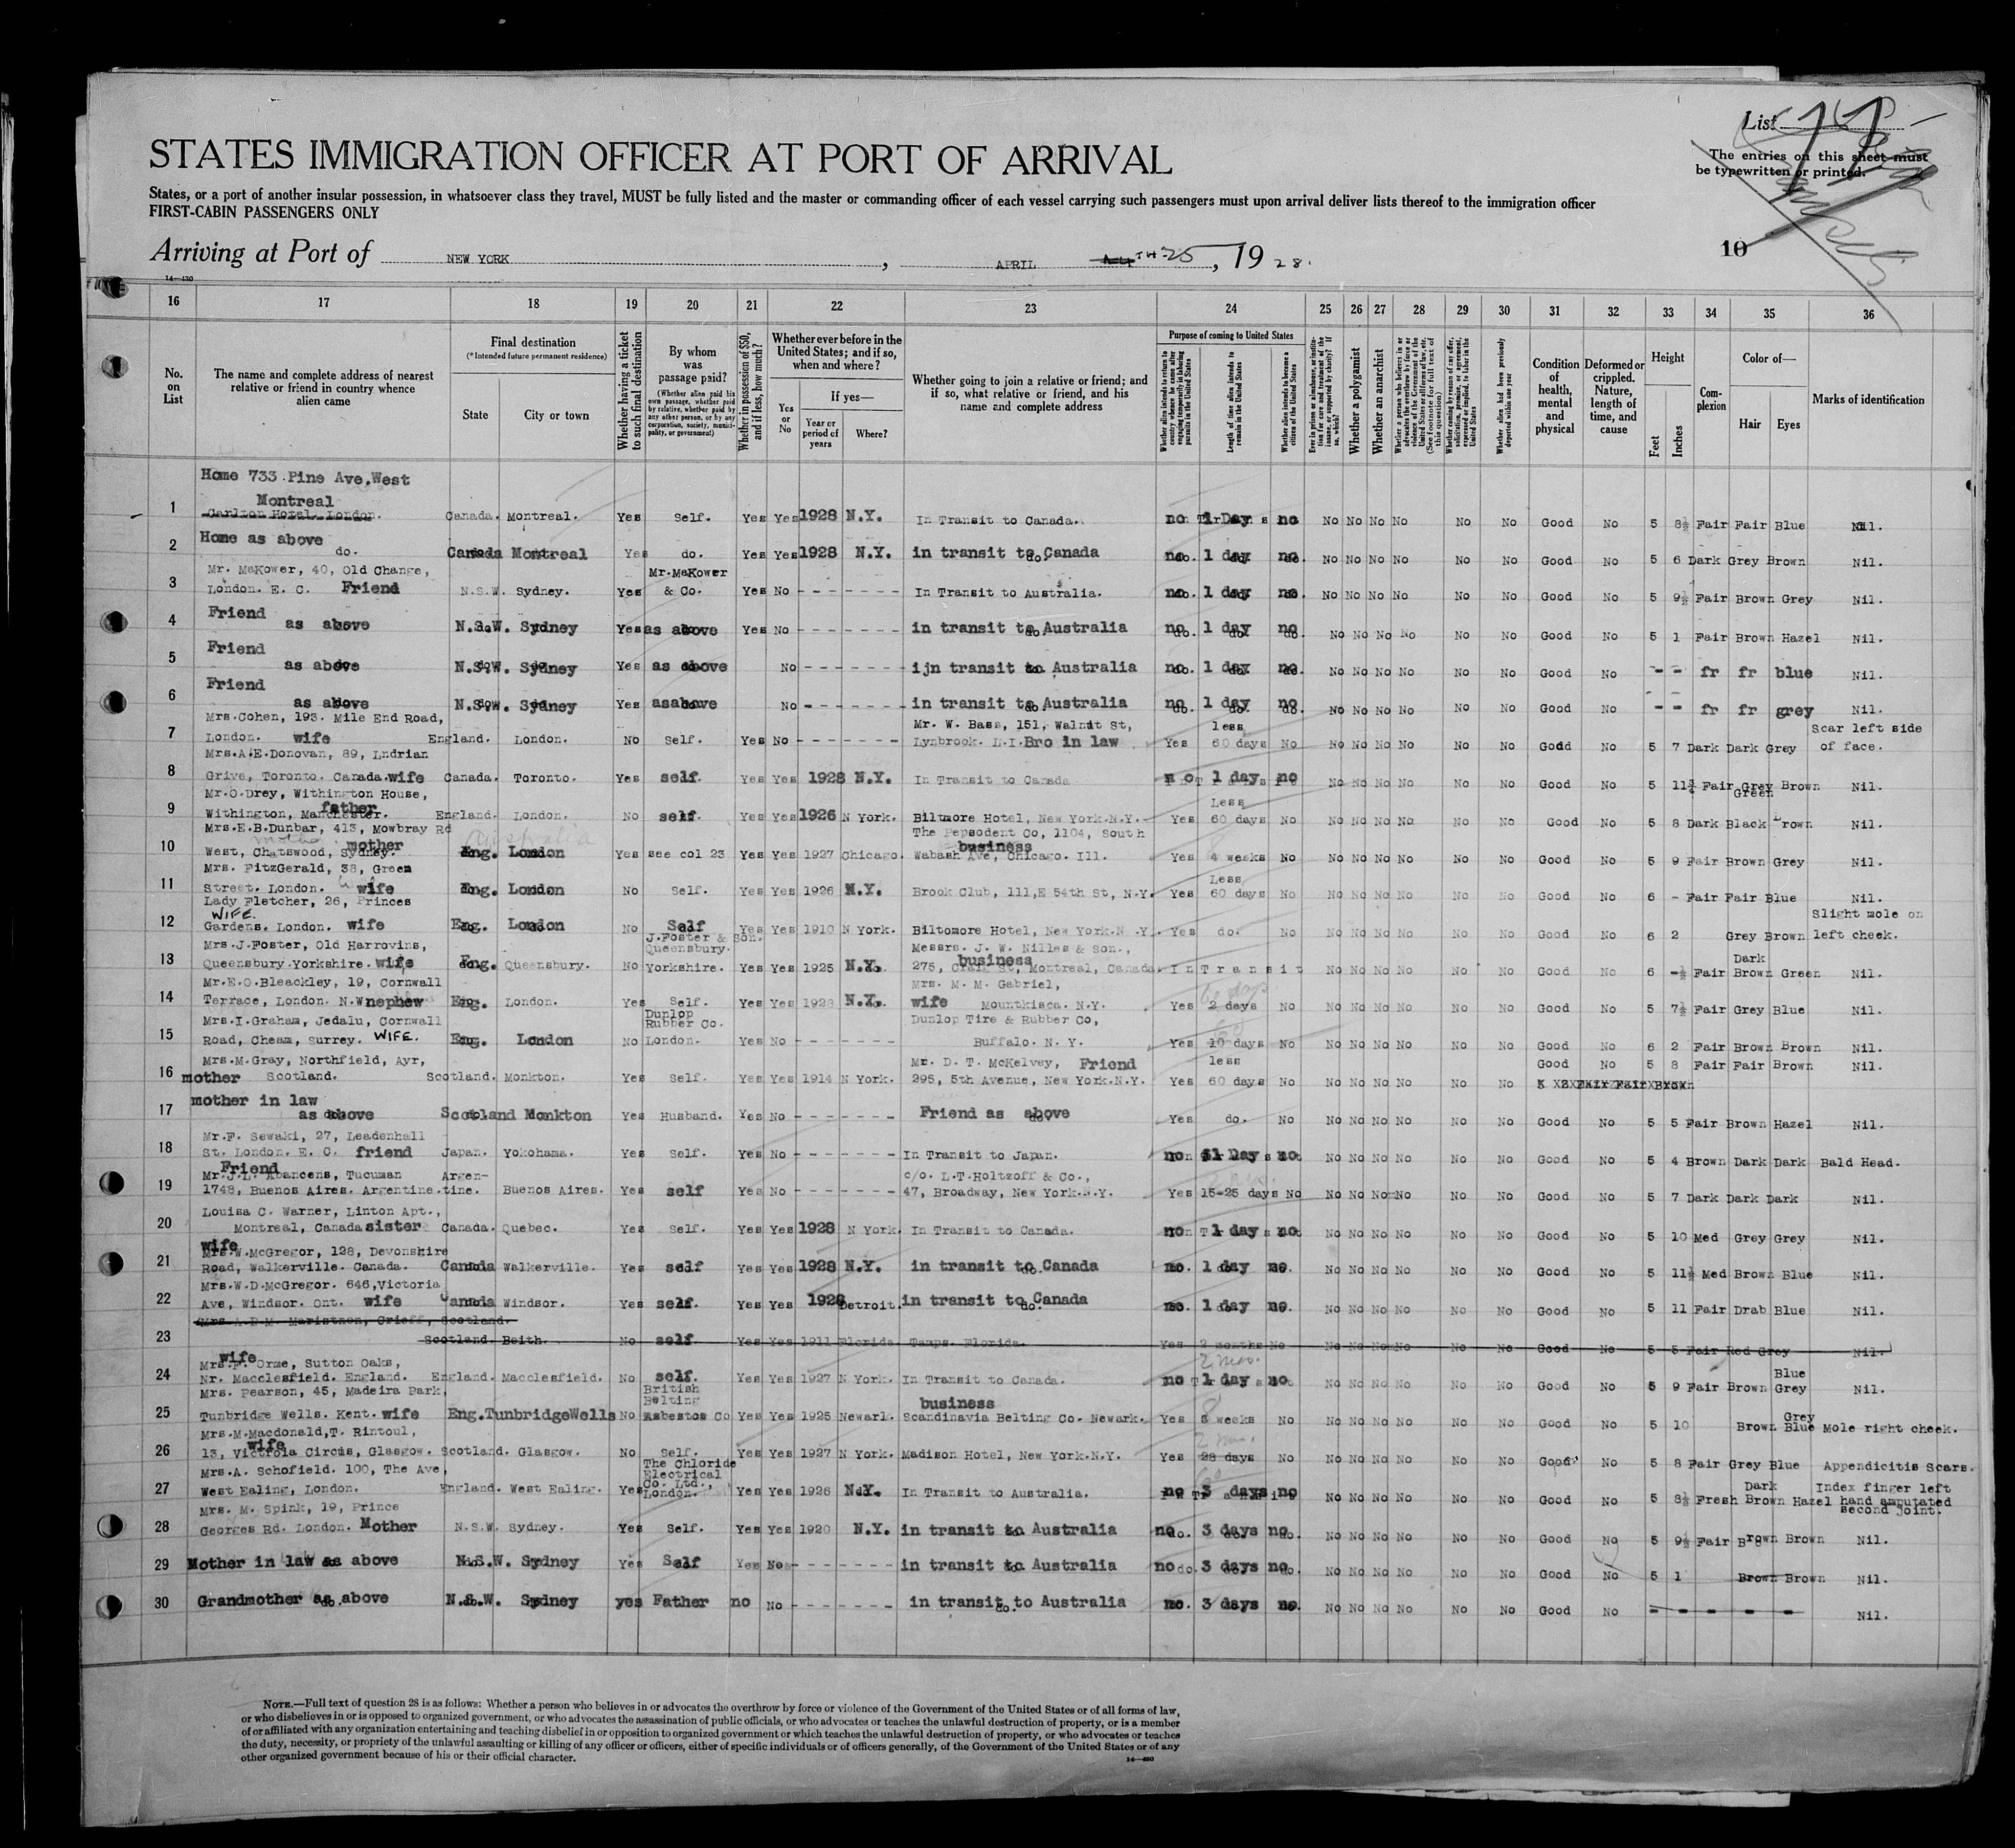 List
STATES IMMIGRATION OFFICER AT PORT OF ARRIVAL
The entries on this sheet must
be typewritten or printed.
States, or a port of another insular possession, in whatsoever class they travel, MUST be fully listed and the master or commanding officer of each vessel carrying such passengers must upon arrival deliver lists thereof to the immigration officer
FIRST-CABIN PASSENGERS ONLY
10
Arriving at Port of NEW YORK , APRIL TH 25 , 19 28.
14—430
16 17 18 19 20 21 22 23 24 25 26 27 28 29 30 31 32 33 34 35 36
No. on List
The name and complete address of nearest relative or friend in country whence alien came
Final destination
(*Intended future permanent residence)
State
City or town
Whether having a ticket to such final destination
By whom was passage paid?
(Whether alien paid his own passage, whether paid by relative, whether paid by any other person, or by any corporation, society, municipality, or government)
Whether in possession of $50, and if less, how much?
Whether ever before in the United States; and if so, when and where?
Yes or No
If yes—
Year or period of years
Where?
Whether going to join a relative or friend; and if so, what relative or friend, and his name and complete address
Purpose of coming to United States
Whether alien intends to return to country whence he came after engaging temporarily in laboring pursuits in the United States
Length of time alien intends to remain in the United States
Whether alien intends to become a citizen of the United States
Ever in prison or almshouse, or institution for care and treatment of the insane, or supported by charity? If so, which?
Whether a polygamist
Whether an anarchist
Whether a person who believes in or advocates the overthrow by force or violence of the Government of the United States or all forms of law, etc. (See footnote for full text of this question)
Whether coming by reason of any offer, solicitation, promise, or agreement, expressed or implied, to labor in the United States
Whether alien had been previously deported within one year
Condition of health, mental and physical
Deformed or crippled. Nature, length of time, and cause
Height
Feet
Inches
Complexion
Color of—
Hair
Eyes
Marks of identification
Home 733 Pine Ave.West
Montreal
1 Carlton Hotel. London. Canada. Montreal. Yes Self. Yes Yes 1928 N.Y. In Transit to Canada. no 1 Day no No No No No No No Good No 5 8½ Fair Fair Blue Nil.
Home as above
2 do. Canada Montreal Yes do. Yes Yes 1928 N.Y. in transit to Canada no. 1 day no. No No No No No No Good No 5 6 Dark Grey Brown Nil.
Mr. MaKower, 40, Old Change, Mr.MaKower
3 London. E. C. Friend N.S.W. Sydney. Yes & Co. Yes No - - - - - - - In Transit to Australia. no. 1 day no. No No No No No No Good No 5 9½ Fair Brown Grey Nil.
Friend
4 as above N.S.W. Sydney Yes as above Yes No - - - - - - - in transit to Australia no 1 day no No No No No No No Good No 5 1 Fair Brown Hazel Nil.
Friend
5 as above N.S.W. Sydney Yes as above No - - - - - - - ijn transit to Australia no. 1 day no No No No No No No Good No - - fr fr blue Nil.
Friend
6 as above N.S.W. Sydney Yes asabove No - - - - - - - in transit to Australia no 1 day no No No No No No No Good No - - fr fr grey Nil.
Mrs.Cohen, 193. Mile End Road, Mr. W. Bass, 151, Walnut St, less Scar left side
7 London. wife England. London. No Self. Yes No - - - - - - - Lynbrook. L.I. Bro in law Yes 60 days No No No No No No No Good No 5 7 Dark Dark Grey of face.
Mrs.A.E.Donovan, 89, Indrian
8 Grive, Toronto. Canada. wife Canada. Toronto. Yes self. Yes Yes 1928 N.Y. In Transit to Canada no 1 day no No No No No No No Good No 5 11¾ Fair Grey Brown Nil.
Mr.O.Drey, Withington House, Less Green
9 Withington, Manchester. father England. London. No self. Yes Yes 1926 N York. Biltmore Hotel, New York.N.Y. Yes 60 days No No No No No No No Good No 5 8 Dark Black Brown Nil.
Mrs.E.B.Dunbar, 413, Mowbray Rd Australia The Pepsodent Co, 1104, South
10 West, Chatswood, Sydney. mother Eng. London Yes see col 23 Yes Yes 1927 Chicago. Wabash Ave, Chicago. Ill. business Yes 4 weeks No No No No No No No Good No 5 9 Fair Brown Grey Nil.
Mrs. FitzGerald, 38, Green Less
11 Street. London. wife Eng. London No Self. Yes Yes 1926 N.Y. Brook Club, 111,E 54th St, N.Y. Yes 60 days No No No No No No No Good No 6 - Fair Fair Blue Nil.
Lady Fletcher, 26, Princes Slight mole on
WIFE.
12 Gardens. London. wife Eng. London No Self Yes Yes 1910 N York. Biltomore Hotel, New York.N.Y. Yes do. No No No No No No No Good No 6 2 Grey Brown left cheek.
Mrs.J.Foster, Old Harrovins, J.Foster & Son. Queensbury. Messrs. J. W. Nilles & Son., Dark
13 Queensbury.Yorkshire. wife Eng. Queensbury. No Yorkshire. Yes Yes 1925 N.Y. 275, Craig St, Montreal, Canada. business In Transit No No No No No No Good No 6 -½ Fair Brown Green Nil.
Mr.E.O.Bleackley, 19, Cornwall Mrs. M. M. Gabriel, 60 days
14 Terrace, London. N.W nephew Eng. London. Yes Self. Yes Yes 1928 N.Y. wife Mountkisca. N.Y. Yes 2 days No No No No No No No Good No 5 7½ Fair Grey Blue Nil.
Mrs.I.Graham, Jedalu, Cornwall Dunlop Rubber Co. Dunlop Tire & Rubber Co, 60
15 Road, Cheam, Surrey. WIFE. Eng. London No London. Yes No - - - - - - - Buffalo. N. Y. Yes 10 days No No No No No No No Good No 6 2 Fair Brown Brown Nil.
Mrs.M.Gray, Northfield, Ayr, Mr. D. T. McKelvey, Friend less Good No 5 8 Fair Fair Brown Nil.
16 mother Scotland. Scotland. Monkton. Yes Self. Yes Yes 1914 N York. 295, 5th Avenue, New York.N.Y. Yes 60 days No No No No No No No
mother in law
17 as above Scotland Monkton Yes Husband. Yes No - - - - - - - Friend as above Yes do. No No No No No No No Good No 5 5 Fair Brown Hazel Nil.
Mr.F. Sewaki, 27, Leadenhall
18 St. London. E. C. friend Japan. Yokohama. Yes Self. Yes No - - - - - - - In Transit to Japan. no 1 Day no No No No No No No Good No 5 4 Brown Dark Dark Bald Head.
Friend
Mr.J.L. Abancens, Tucuman Argen- c/o. L.T.Holtzoff & Co.,
19 1748, Buenos Aires. Argentine. tine. Buenos Aires. Yes self Yes No - - - - - - - 47, Broadway, New York.N.Y. Yes 15-25 days No No No No No No No Good No 5 7 Dark Dark Dark Nil.
Louisa C. Warner, Linton Apt.,
20 Montreal, Canada sister Canada. Quebec. Yes Self. Yes Yes 1928 N York. In Transit to Canada. no 1 day no No No No No No No Good No 5 10 Med Grey Grey Nil.
wife
Mrs.W.McGregor, 128, Devonshire
21 Road, Walkerville. Canada. Canada Walkerville. Yes self Yes Yes 1928 N.Y. in transit to Canada no. 1 day no. No No No No No No Good No 5 11½ Med Brown Blue Nil.
Mrs.W.D.McGregor. 646,Victoria
22 Ave, Windsor. Ont. wife Canada Windsor. Yes self. Yes Yes 1928 Detroit. in transit to Canada no. 1 day no. No No No No No No Good No 5 11 Fair Drab Blue Nil.
Mrs A.D.M. Crieff, Scotland.
23 Scotland. Beith. No self Yes Yes 1911 Florida. Tampa. Florida. Yes 2 months No No No No No No No Good No 5 5 Fair Red Grey Nil.
wife
Mrs.F. Orme, Sutton Oaks, 2 mos. Blue
24 Nr. Macclesfield. England. England. Macclesfield. No self. Yes Yes 1927 N York. In Transit to Canada. no 1 day no No No No No No No Good No 5 9 Fair Brown Grey Nil.
Mrs. Pearson, 45, Madeira Park, British Belting business 8 Grey
25 Tunbridge Wells. Kent. wife Eng. TunbridgeWells No Asbestos Co Yes Yes 1925 Newark. Scandinavia Belting Co. Newark. Yes 8 weeks No No No No No No No Good No 5 10 Brown Blue Mole right cheek.
Mrs.M.Macdonald,T. Rintoul, 2 mos.
26 13, Victroia Circus, Glasgow. wife Scotland. Glasgow. No Self. Yes Yes 1927 N York. Madison Hotel, New York.N.Y. Yes 28 days No No No No No No No Good No 5 8 Fair Grey Blue Appendicitis Scars.
Mrs.A. Schofield. 100, The Ave, The Chloride Electrical Co. Ltd., 60 Dark Index finger left
27 West Ealing, London. England. West Ealing. Yes London. Yes Yes 1926 N.Y. In Transit to Australia. no 3 days no No No No No No No Good No 5 8½ Fresh Brown Hazel hand amputated
second joint.
Mrs. M. Spink, 19, Prince
28 Georges Rd. London. Mother N.S.W. Sydney. Yes Self. Yes Yes 1920 N.Y. in transit to Australia no. 3 days no. No No No No No No Good No 5 9½ Fair Brown Brown Nil.
29 Mother in law as above N.S.W. Sydney Yes Self Yes No - - - - - - - in transit to Australia no 3 days no. No No No No No No Good No 5 1 Brown Brown Nil.
30 Grandmother as above N.S.W. Sydney yes Father no No - - - - - - - in transit to Australia no. 3 days no. No No No No No No Good No - - - - - Nil.
NOTE.—Full text of question 28 is as follows: Whether a person who believes in or advocates the overthrow by force or violence of the Government of the United States or of all forms of law,
or who disbelieves in or is opposed to organized government, or who advocates the assassination of public officials, or who advocates or teaches the unlawful destruction of property, or is a member
of or affiliated with any organization entertaining and teaching disbelief in or opposition to organized government or which teaches the unlawful destruction of property, or who advocates or teaches
the duty, necessity, or propriety of the unlawful assaulting or killing of any officer or officers, either of specific individuals or of officers generally, of the Government of the United States or of any
other organized government because of his or their official character.
14—430